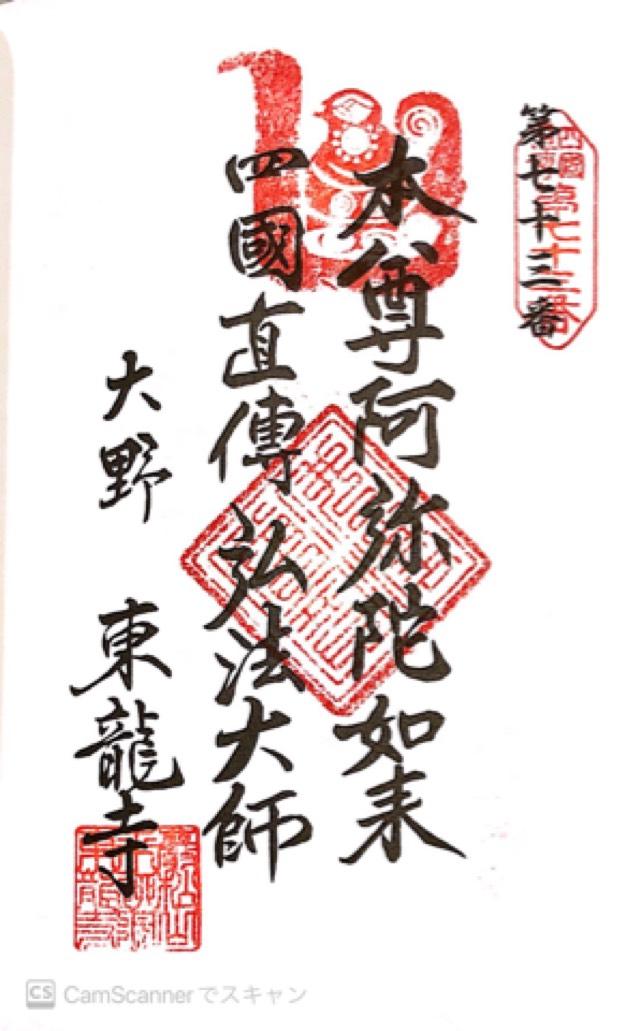 第七十三番
四國
第七十三番
本尊阿弥陀如来
四國直傳弘法大師
大野 東龍寺
CS CamScannerでスキャン